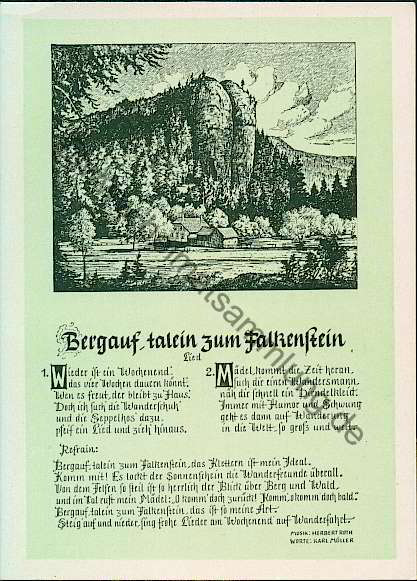 Bergauf, talein zum Falkenstein
Lied
1. Wieder ist ein Wochenend'
das vier Wochen dauern könnt'.
Wen es freut, der bleibt zu Haus'.
Doch ich such die Wanderschuh'
und die Seppelhos' dazu,
pfeif ein Lied und zieh' hinaus.
2. Mädel, kommt die Zeit heran,
such dir einen Wandersmann,
näh dir schnell ein Dirndelkleid.
Immer mit Humor und Schwung
geht es dann auf Wanderung
in die Welt, so groß und weit.
Refrain:
Bergauf, talein zum Falkenstein, das Klettern ist mein Ideal.
Komm mit! Es lockt der Sonnenschein die Wanderfreunde überall.
Von dem Felsen so steil ist so herrlich der Blick über Berg und Wald,
und im Tal ruft mein Mädel: „O komm' doch zurück! Komm', o komm doch bald."
Bergauf, talein zum Falkenstein, das ist so meine Art.
Steig auf und nieder, sing frohe Lieder am Wochenend' auf Wanderfahrt.
MUSIK: HERBERT ROTH
WORTE: KARL MÜLLER